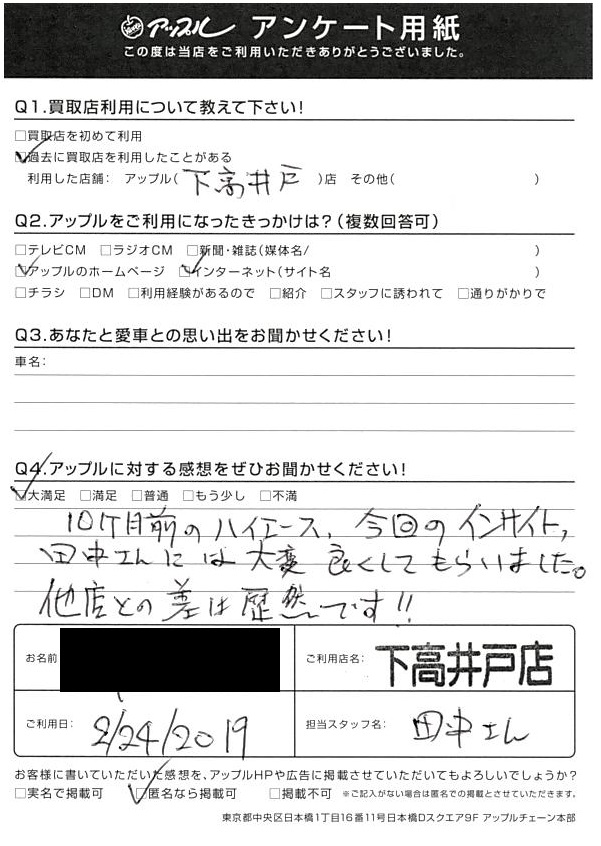 アップル アンケート用紙
この度は当店をご利用いただきありがとうございました。
Q1.買取店利用について教えて下さい!
□買取店を初めて利用
☑過去に買取店を利用したことがある
利用した店舗: アップル(下高井戸)店 その他( )
Q2.アップルをご利用になったきっかけは?(複数回答可)
□テレビCM □ラジオCM □新聞・雑誌(媒体名/ )
☑アップルのホームページ ☑インターネット(サイト名 )
□チラシ □DM □利用経験があるので □紹介 □スタッフに誘われて □通りがかりで
Q3.あなたと愛車との思い出をお聞かせください!
車名:
Q4.アップルに対する感想をぜひお聞かせください!
☑大満足 □満足 □普通 □もう少し □不満
10ケ月前のハイエース、今回のインサイト,
田中さんには大変良くしてもらいました。
他店との差は歴然です!!
お名前 ご利用店名: 下高井戸店
ご利用日: 2/24/2019 担当スタッフ名: 田中さん
お客様に書いていただいた感想を、アップルHPや広告に掲載させていただいてもよろしいでしょうか?
□実名で掲載可 ☑匿名なら掲載可 □掲載不可 ※ご記入がない場合は匿名での掲載とさせていただきます。
東京都中央区日本橋1丁目16番11号日本橋Dスクエア9F アップルチェーン本部